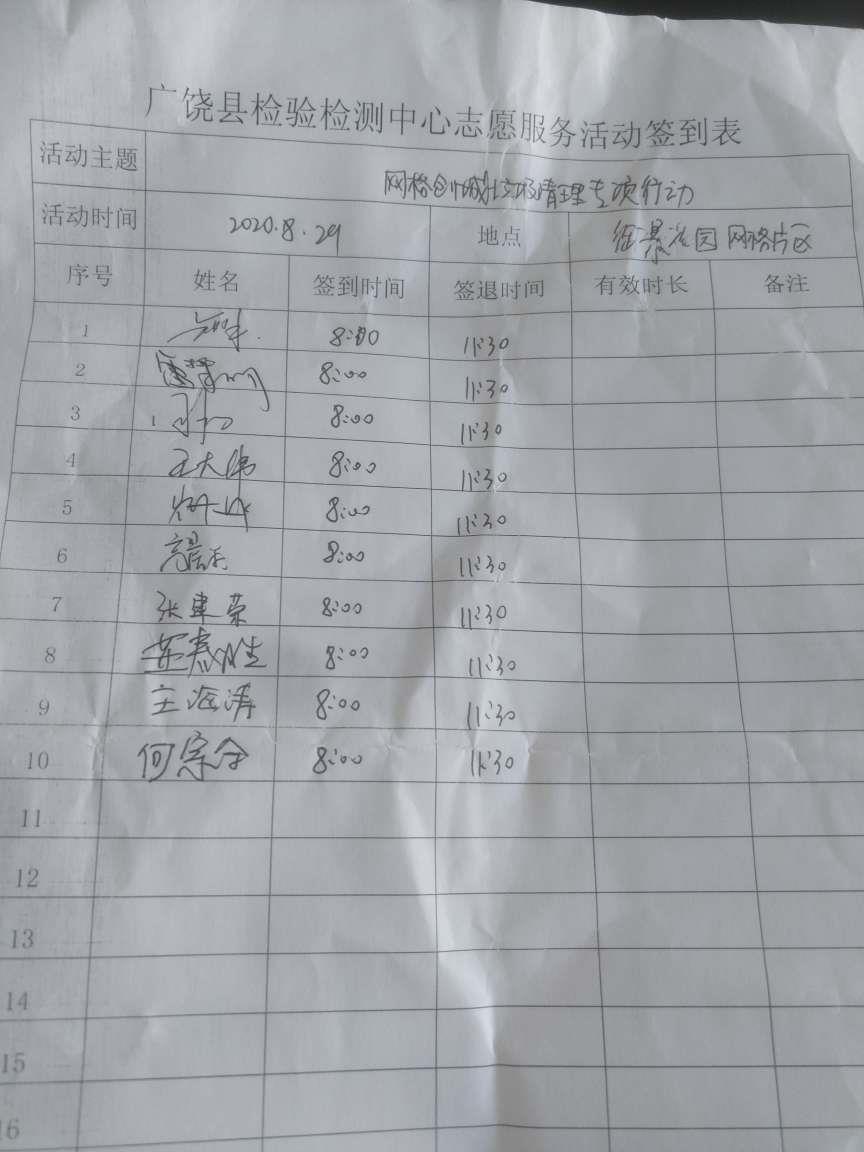 广饶县检验检测中心志愿服务活动签到表
活动主题 网格创城垃圾清理专项行动
活动时间 2020.8.29 地点 花园网格片区
序号 姓名 签到时间 签退时间 有效时长 备注
1 8:00 11:30
2 8:00 11:30
3 8:00 11:30
4 王大伟 8:00 11:30
5 8:00 11:30
6 8:00 11:30
7 张建荣 8:00 11:30
8 8:00 11:30
9 王海涛 8:00 11:30
10 何宗全 8:00 11:30
11
12
13
14
15
16